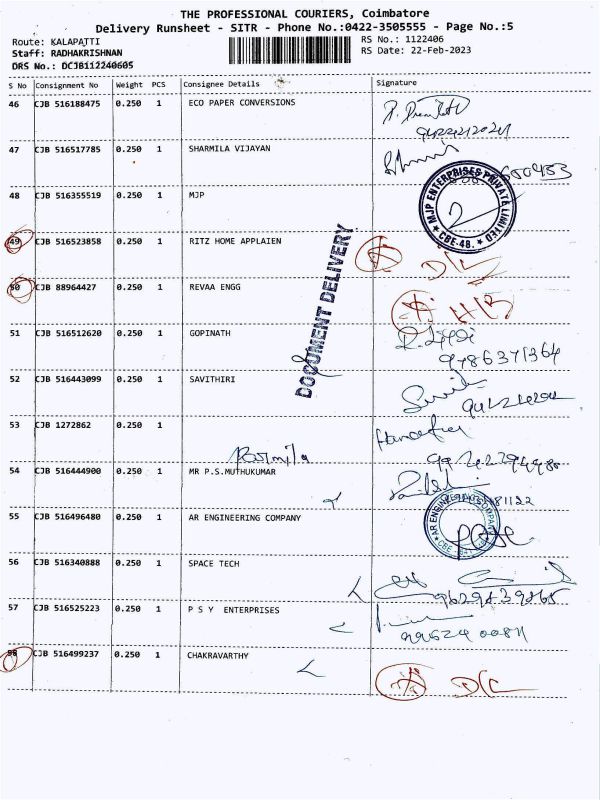 THE PROFESSIONAL COURIERS, Coimbatore
Delivery Runsheet - SITR - Phone No.:0422-3505555 - Page No.:5
Route: KALAPATTI
RS No.: 1122406
Staff: RADHAKRISHNAN
RS Date: 22-Feb-2023
DRS No.: DCJB112240605
S No Consignment No Weight PCS Consignee Details Signature
46 CJB 516188475 0.250 1 ECO PAPER CONVERSIONS
47 CJB 516517785 0.250 1 SHARMILA VIJAYAN
48 CJB 516355519 0.250 1 MJP
MJP ENTERPRISES PRIVATE LIMITED
CBE-48.
49 CJB 516523858 0.250 1 RITZ HOME APPLAIEN
D/L
DOCUMENT DELIVERY
50 CJB 88964427 0.250 1 REVAA ENGG
51 CJB 516512620 0.250 1 GOPINATH
9786371364
52 CJB 516443099 0.250 1 SAVITHIRI
53 CJB 1272862 0.250 1
54 CJB 516444900 0.250 1 MR P.S.MUTHUKUMAR
55 CJB 516496480 0.250 1 AR ENGINEERING COMPANY
AR ENGINEERING COMPANY
56 CJB 516340888 0.250 1 SPACE TECH
9629839865
57 CJB 516525223 0.250 1 P S Y ENTERPRISES
58 CJB 516499237 0.250 1 CHAKRAVARTHY
D/L